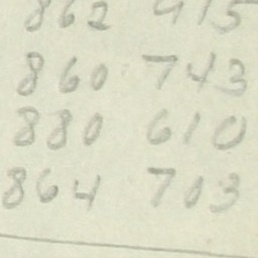 862 915
860 743
880 610
864 703